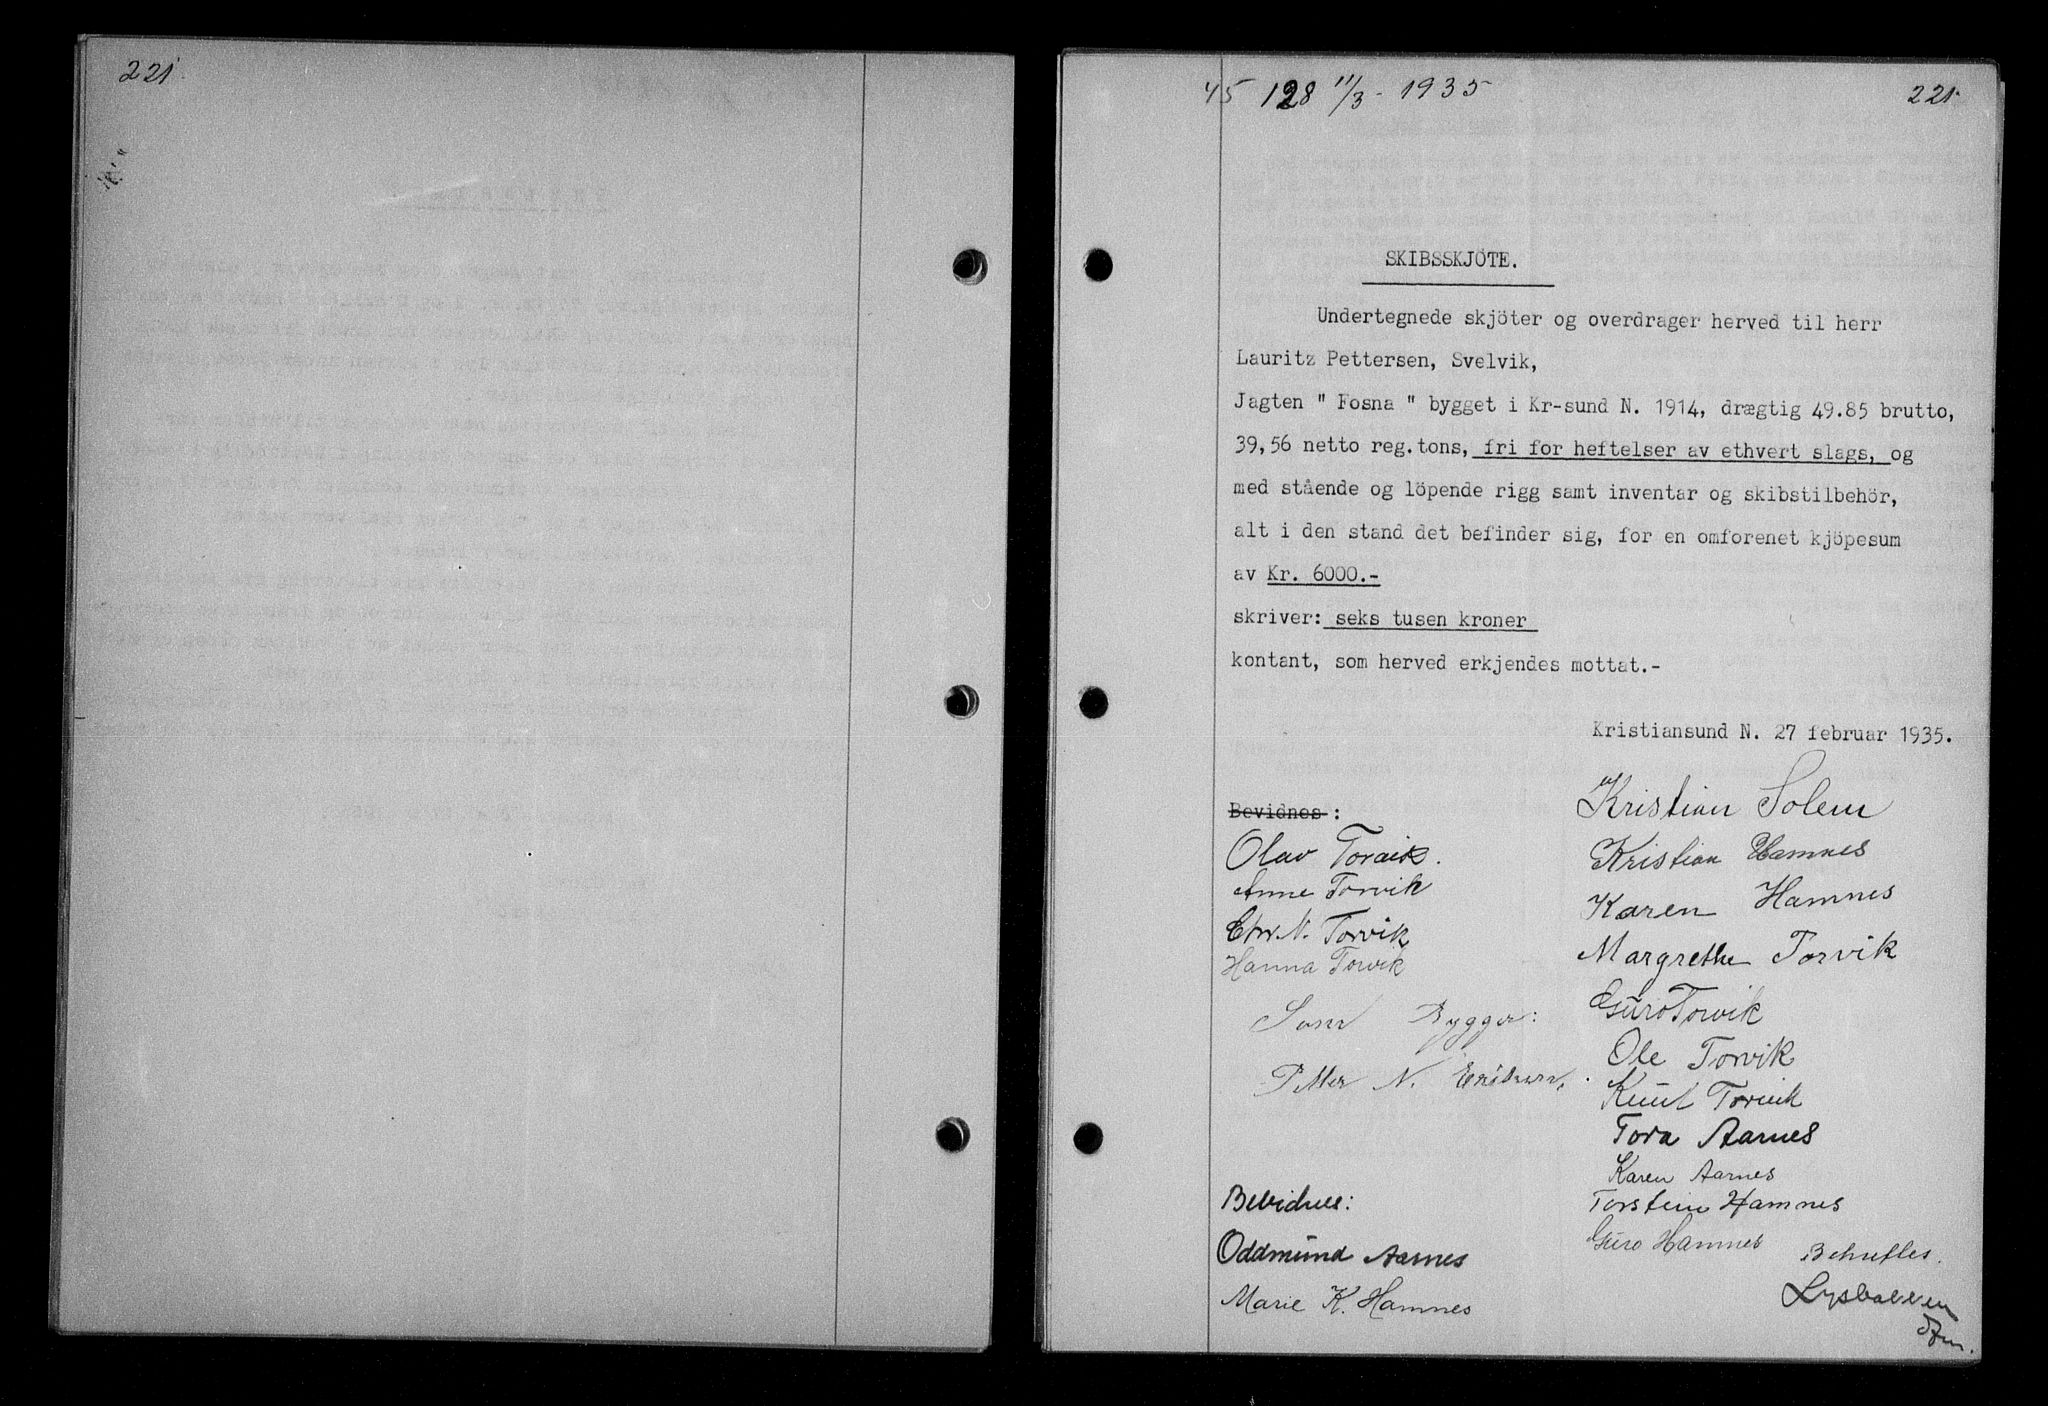 221
45 128 11/3 - 1935
221
SKIBSSKJÖTE.
Undertegnede skjöter og overdrager herved til herr
Lauritz Pettersen, Svelvik,
Jagten " Fosna " bygget i Kr-sund N. 1914, drægtig 49.85 brutto,
39,56 netto reg.tons, fri for heftelser av ethvert slags, og
med stående og löpende rigg samt inventar og skibstilbehör,
alt i den stand det befinder sig, for en omforenet kjöpesum
av Kr. 6000.-
skriver: seks tusen kroner
kontant, som herved erkjendes mottat.-
Kristiansund N. 27 februar 1935.
Bevidnes :
Olav Torvik.
Anne Torvik
Chr. N. Torvik
Hanna Torvik
Som Bygger:
Petter N. Eriksen.
Bevidnes:
Oddmund Aarnes
Marie K. Hamnes
Kristian Solem
Kristian Hamnes
Karen Hamnes
Margrethe Torvik
Guro Torvik
Ole Torvik
Knut Torvik
Tora Aarnes
Karen Aarnes
Torstein Hamnes
Guro Hamnes